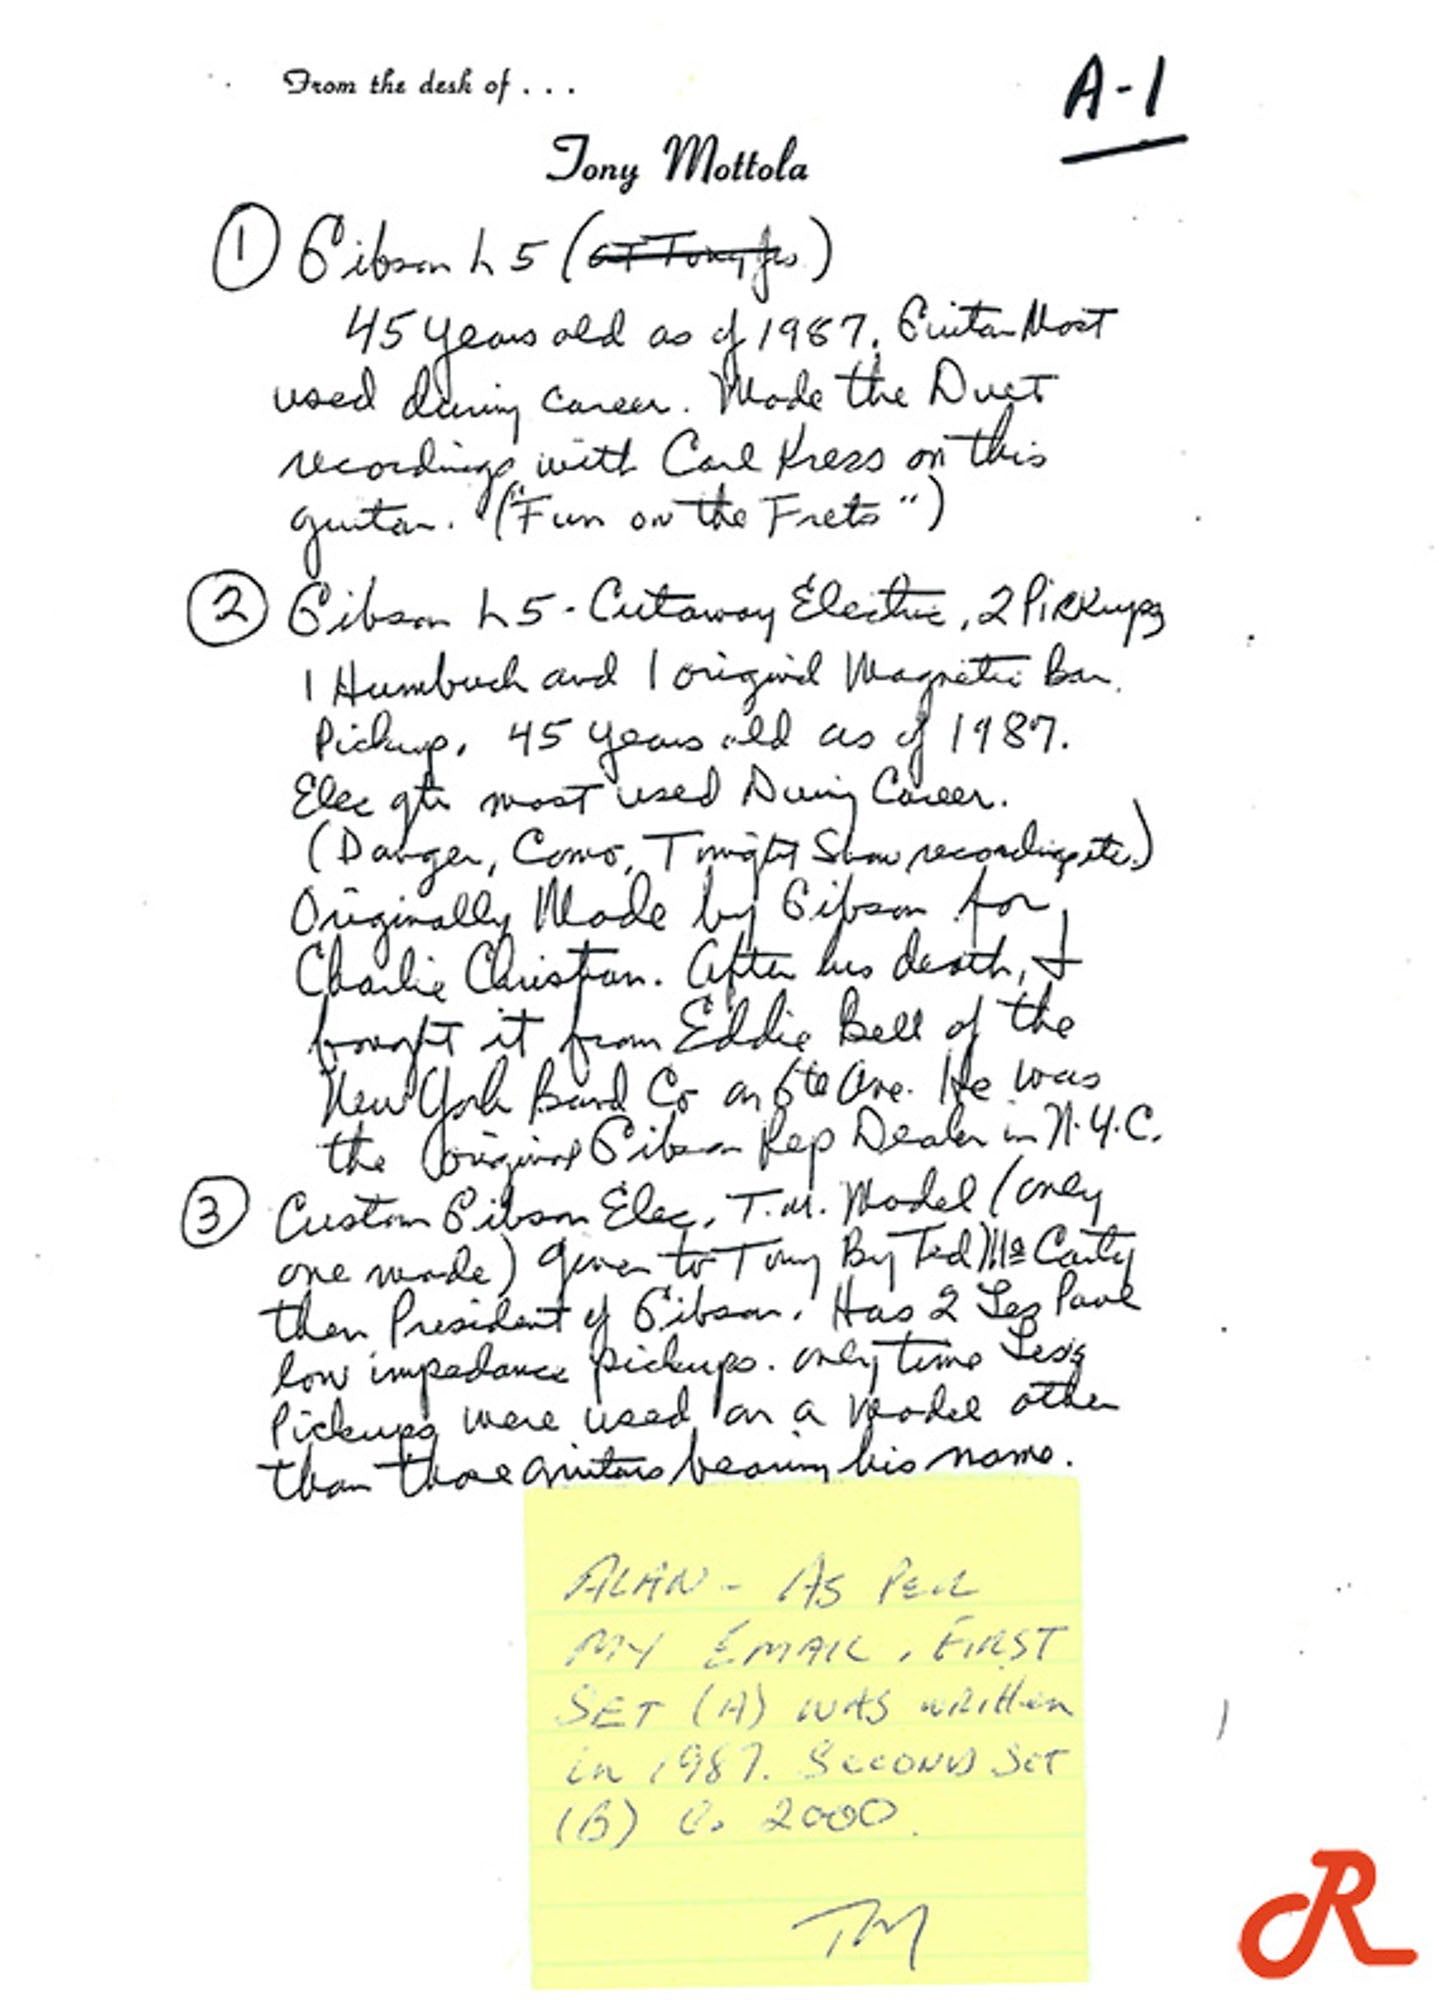 From the desk of . . .
A-1
Tony Mottola
① Gibson L5 (at Tony Jrs)
45 years old as of 1987. Guitar Most
used during career. Made the Duet
recordings with Carl Kress on this
guitar. ("Fun on the Frets")
② Gibson L5 - Cutaway Electric, 2 Pickups
1 Humbuck and 1 original Magnetic Bar
Pickup. 45 years old as of 1987.
Elec gtr most used During Career.
(Danger, Como, Tonight Show recordings etc.)
Originally Made by Gibson for
Charlie Christian. After his death, I
bought it from Eddie Bell of the
New York Band Co on 6th Ave. He was
the original Gibson Rep Dealer in N.Y.C.
③ Custom Gibson Elec, T.M. Model (only
one made) given to Tony By Ted McCarty
then President of Gibson. Has 2 Les Paul
low impedance pickups. only time Les's
Pickups were used on a model other
than those guitars bearing his name.
ALAN - AS PER
MY EMAIL, FIRST
SET (A) WAS written
in 1987. SECOND SET
(B) C. 2000.
TM
R